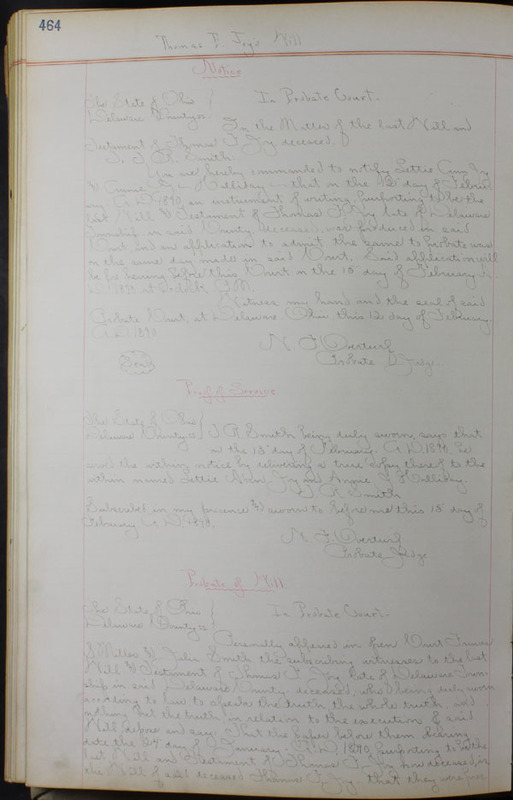 464
Thomas F. Joy's Will
Notice
The State of Ohio
Delaware County ss. In Probate Court.
In the Matter of the Last Will and
Testament of Thomas F. Joy deceased.
To J. R. Smith.
You are hereby commanded to notify Lettie Ann Joy
& Annie J. Halliday that on the 12" day of Febru
ary A.D. 1890, an instrument of writing, purporting to be the
Last Will & Testament of Thomas F. Joy late of Delaware
Township in said County, deceased, was produced in said
Court and an application to admit the same to Probate was
on the same day made in said Court. Said application will
be for hearing before this Court on the 15" day of February A.
D. 1890, at o'clock P.M.
Witness my hand and the seal of said
Probate Court, at Delaware, Ohio this 12 day of February
A.D. 1890
N. F. Overturf
Probate Judge.
Seal
Proof of Service
The State of Ohio
Delaware County ss J R Smith being duly sworn, says that
on the 13" day of February A.D. 1890, he
served the within notice by delivering a true copy thereof to the
within named Lettie Joy and Annie J Halliday.
J R Smith
Subscribed in my presence & sworn to before me this 15" day of
February A.D. 1890.
N. F. Overturf
Probate Judge
Probate of Will
The State of Ohio
Delaware County ss In Probate Court.
Personally appeared in open Court
Miller & John Smith the subscribing witnesses to the last
Will & Testament of Thomas F. Joy late of Delaware Town-
ship in said Delaware County deceased, who being duly sworn
according to law to speak the truth, the whole truth, and
nothing but the truth, in relation to the execution of said
Will depose and say: That the paper before them bearing
date the 24" day of January A.D. 1890, purporting to be the
last Will and Testament of Thomas F. Joy now deceased, is
the Will of said deceased Thomas F. Joy. that they were